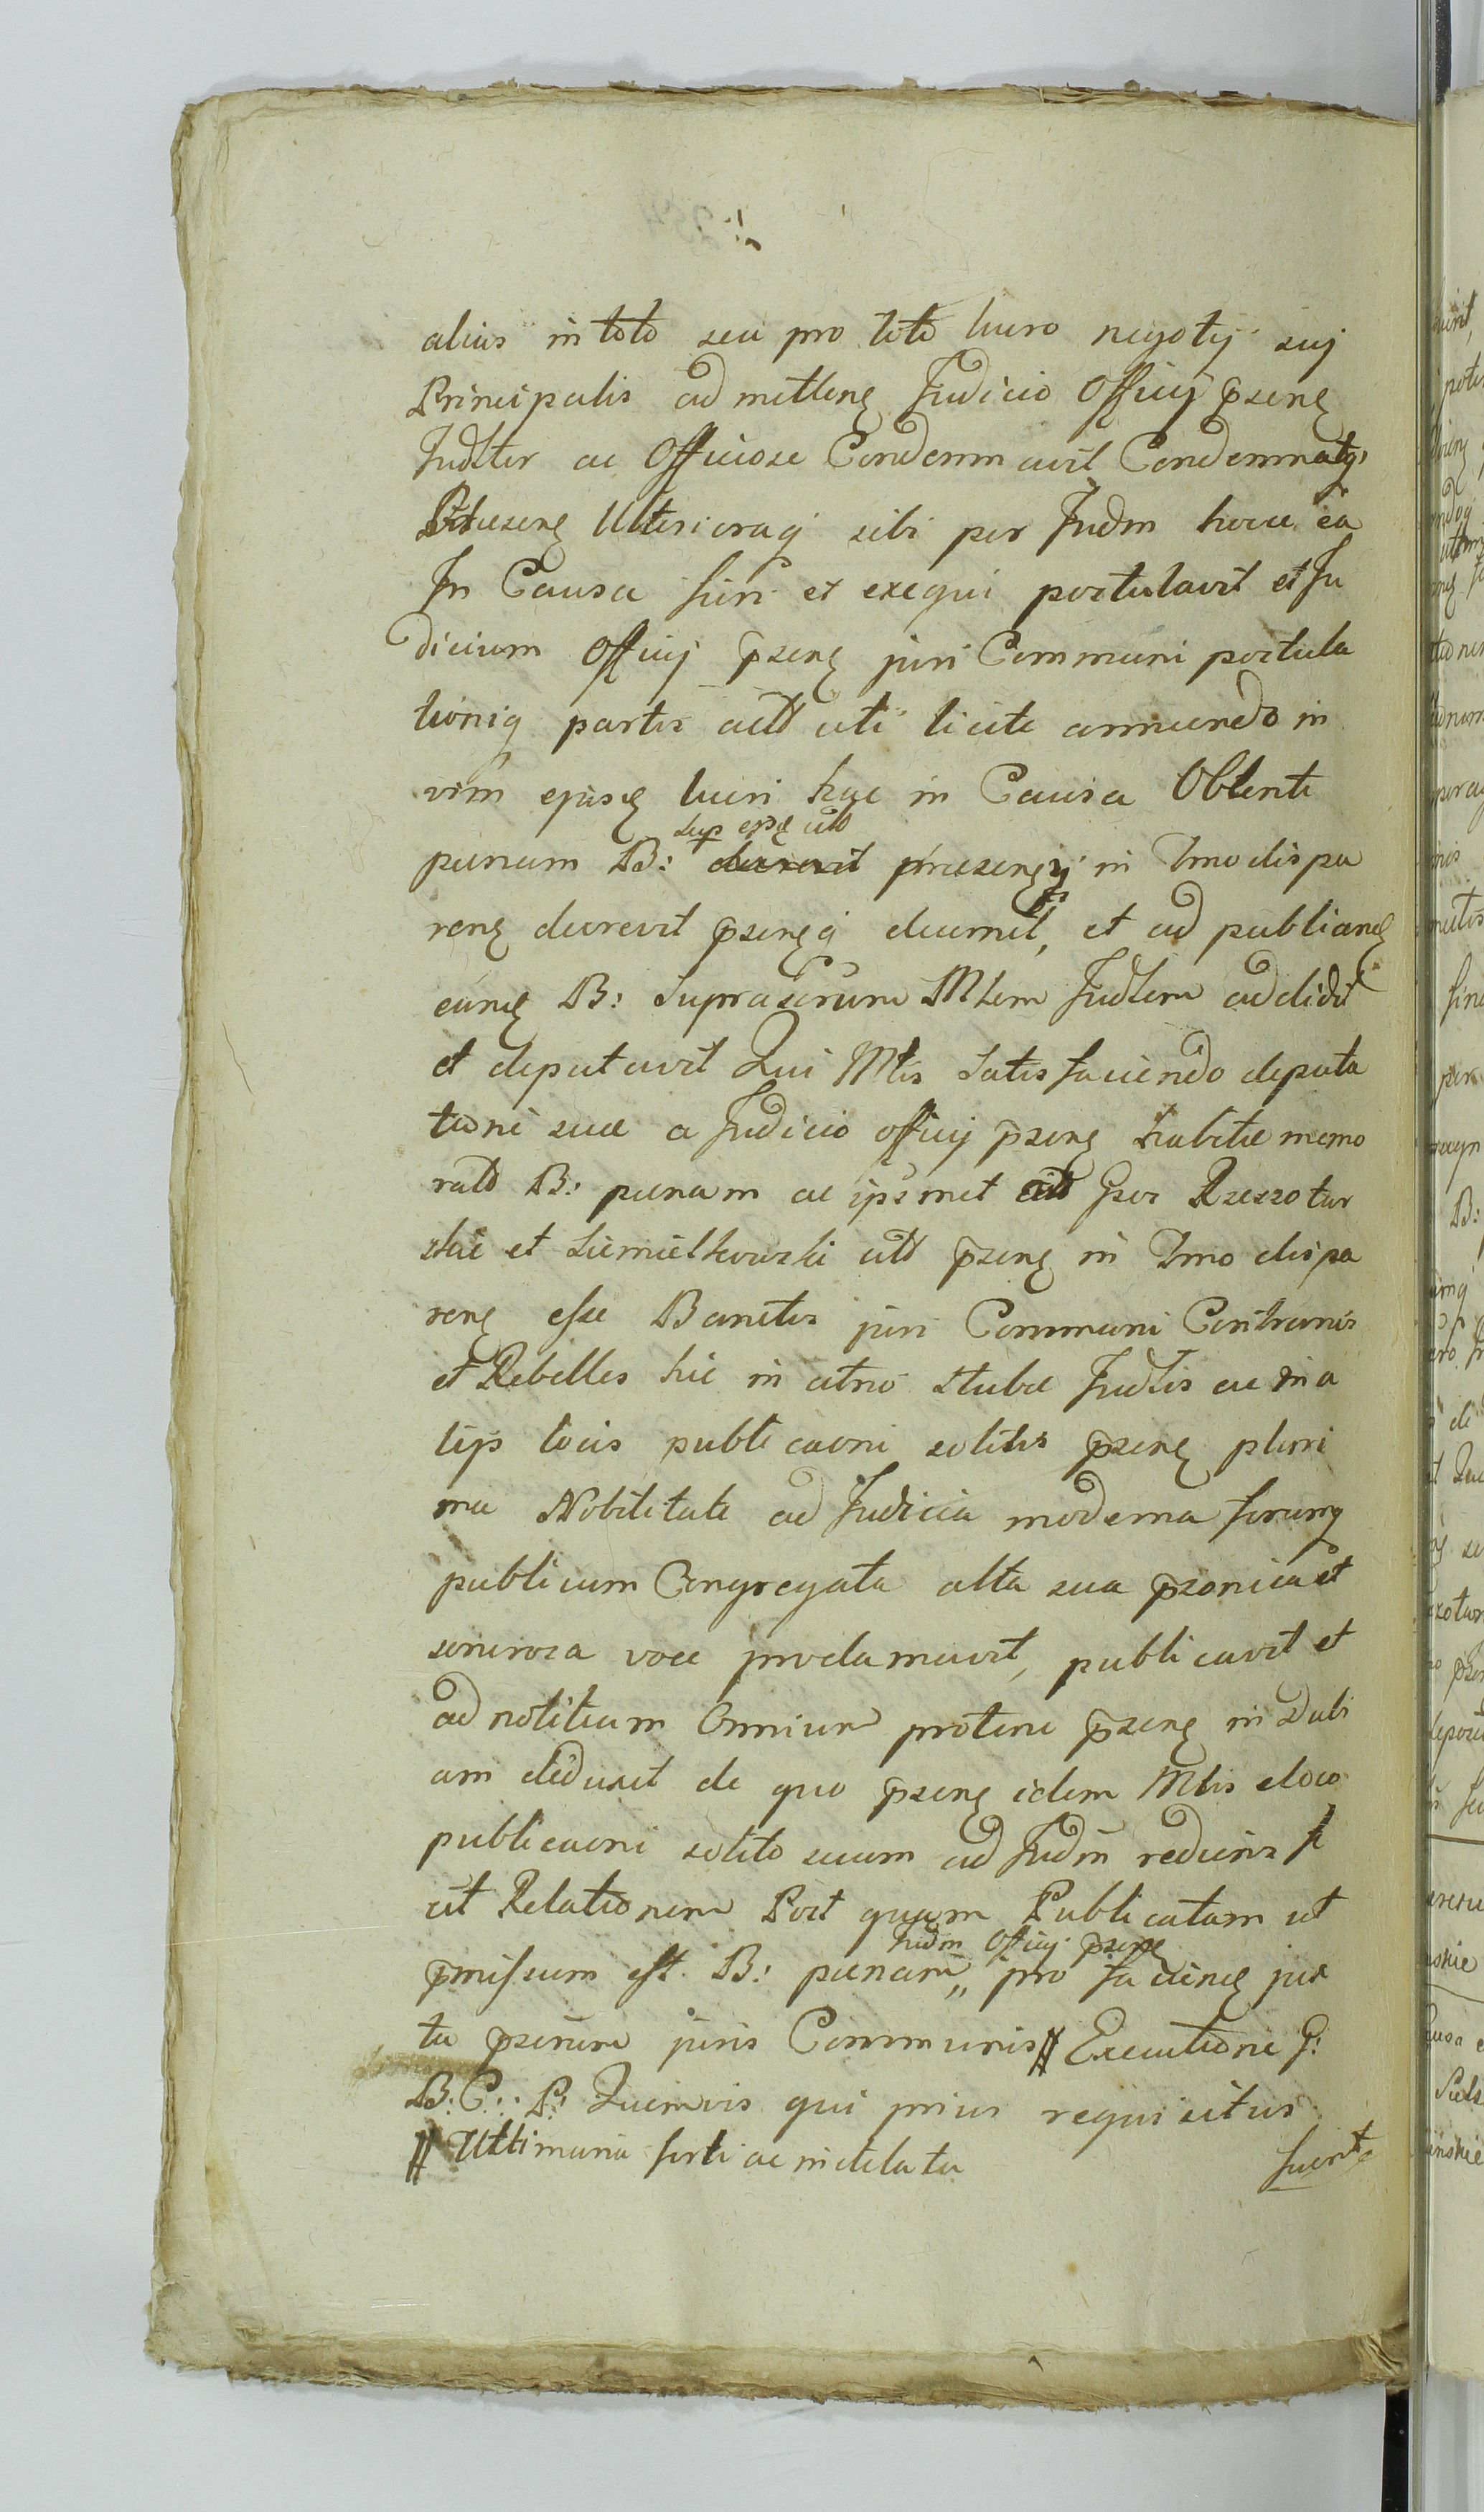 alias in toto seu pro toto lucro negotij suj
Principalis admitten Judicio Officij psen
Judltr ac Officiose Condemnavit Condemnatq
Ulterioraq sibi per Judm hacce ea
In Causa fieri et exequi postulavit et Ju
dicium Officij psen juri Communi postula
tioniq partis actd uti licite annuendo in
vim ejusd lucri hac in Causa Obtenti
sup eosd citd
paenam B: decrevit praesenq in Tmo dispa
ren decrevit psenq decernit, et ad publicand
eand B: Suprascrum Mlem Judlem addidit
et deputavit Qui Mlis Satisfaciendo deputa
tioni suae a Judicio officij psen habitae memo
ratd B: paenam ac ipsmet citd Gsos Rzeszotar
skie et Siemieltkowski citd psen in Tmo dispa
ren esse Banitos juri Communi Contrarios
et Rebelles hic in atrio Stubae Judlis ac in a
lijs locis publicaoni solitis psen pluri
ma Nobilitate ad Judicia moderna forumq
publicum Congregata alta sua psonica et
sonorosa voce proclamavit, publicavit et
ad notitiam Omnium protunc psen indubi
am deduxit de quo psen idem Mlis eloco
publicaoni solito suum ad Judm rediens f
cit Relationem Post quam Publicatam ut
Judm Officij psens
pmissum est B: paenam,, pro faciend jux
ta pscrum juris Communis // Executione G:
B: C: P: Quemvis qui prius requisitus
// Ultimaria forti ac indelata
fuerit